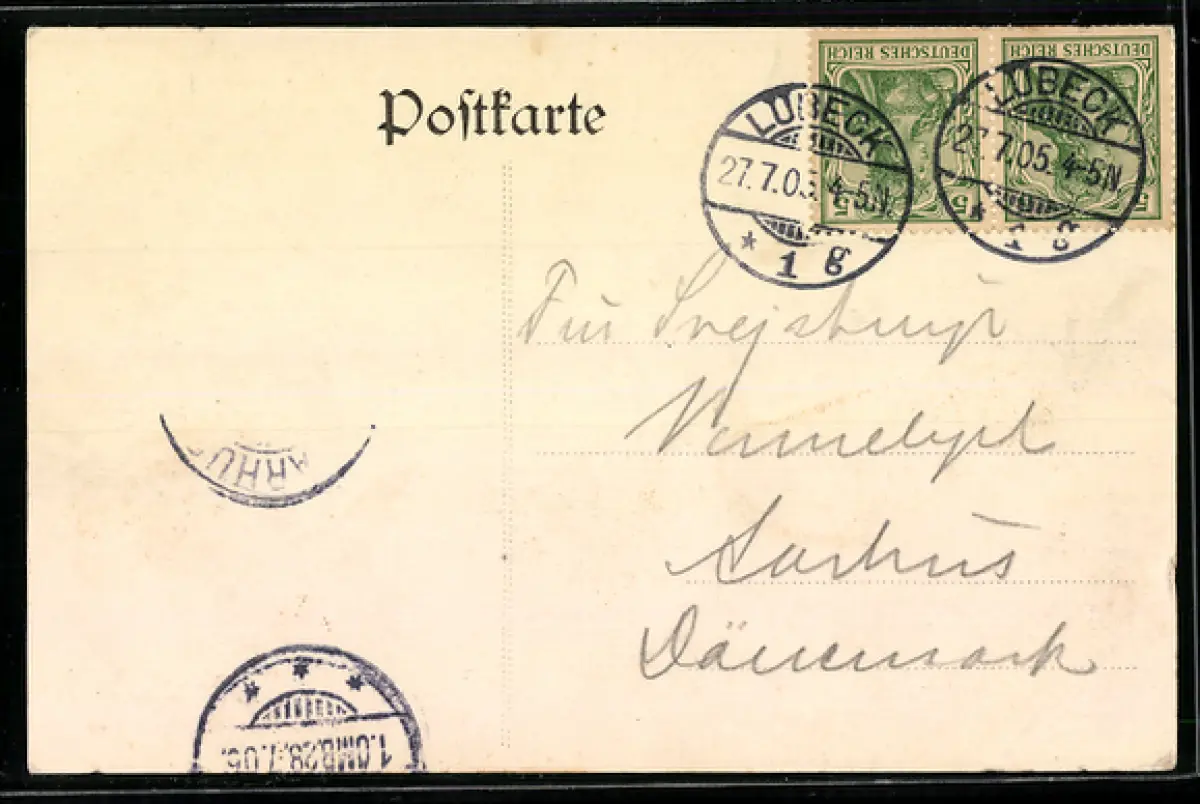 Postkarte
DEUTSCHES REICH DEUTSCHES REICH
5 5 5 5
LÜBECK
27.7.05. 4-5N.
* 1 g
LÜBECK
27.7.05. 4-5N.
*
Svejstrup
Aarhus
Dänemark
ARHU
* * *
1.OMB.28.7.05.